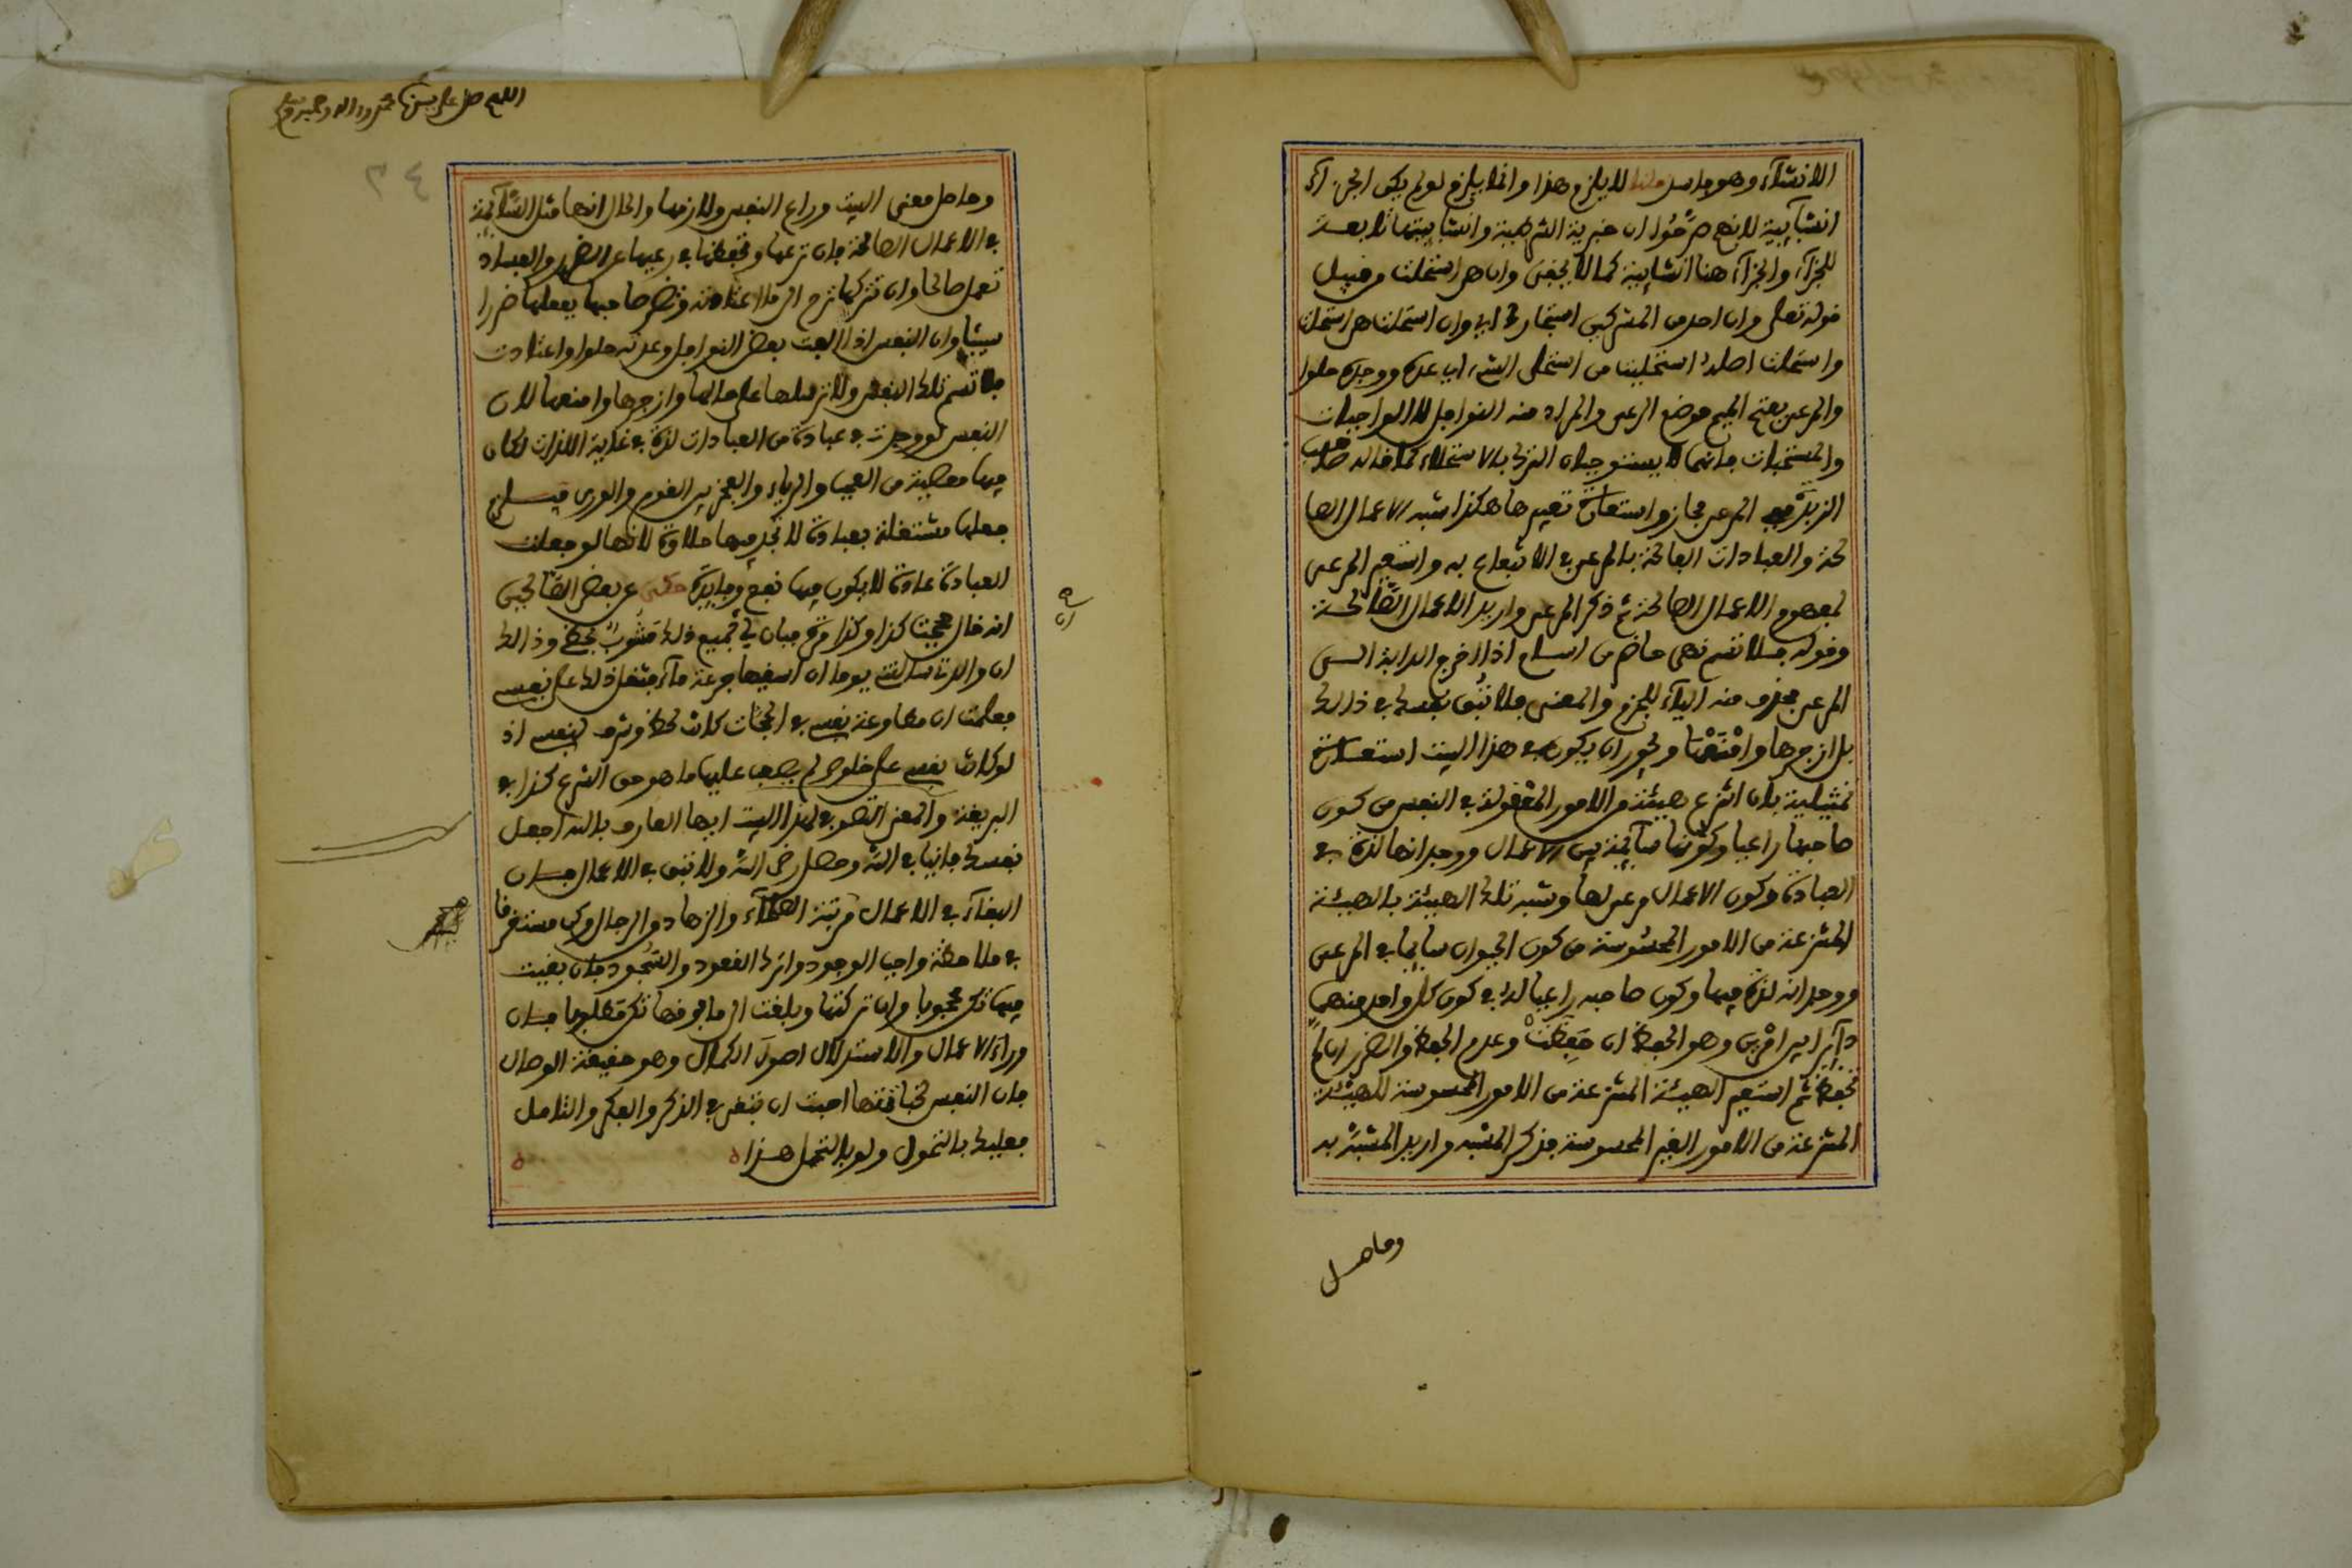 الانشآء وهو فاسد قلنا لا يلزم هذا وانما يلزم لو لم يكن الجزآء
انشآئية لانهم صرّحوا ان خبرية الشرطية وانشائيتها تابعة
للجزآء والجزآء هنا انشائية كما لا يخفى وان هي استحلت من قبيل
قوله تعلى وان احد من المشركين استجارك اي وان استحلت هي استحلت
واستحلت اصله استحليت من استحلى الشيء اي عده ووجده حلوا
والمرعى بفتح الميم موضع الرعي والمراد منه النوافل لا الواجبات
والمستحبات فانهما لا يستوجبان الترك بالاستحلاء كما قاله صاحب
الزبدة في المرعى مجاز واستعارة تقريرها هكذا شبه الاعمال الصا
لحة والعبادات الفالحة بالمرعى في الانتفاع به واستعير المرعى
لمفهوم الاعمال الصالحة ثم ذكر المرعى واريد الاعمال الصّالحة
وقوله فلا تسم نهي حاضر من اسام اذا اخرج الدابة الى
المرعى فحذف منه اليآء للجزم والمعنى فلا تبق نفسك في ذالك
بل ازجرها وامنعها ويجوز ان يكون في هذا البيت استعارة
تمثيلية بان انتزع هيئة من الامور المعقولة في النفس من كون
صاحبها راعيا وكونها سآئمة في الاعمال ووجدانها لذة في
العبادة وكون الاعمال مرعى لها وشبه تلك الهيئة بالهيئة
المنتزعة من الامور المحسوسة من كون الحيوان سائما في المرعى
ووجدانه لذة فيها وكون صاحبه راعيا له في كون كل واحد منهما
دآئرا بين امرين وهو الحفظ ان حفظت وعدم الحفظ والضرر ان لم
تحفظ ثم استعير الهيئة المنتزعة من الامور المحسوسة للهيئة
المنتزعة من الامور الغير المحسوسة فذكر المشبه واريد المشبّه به
وحاصل
اللهم صل على سيدنا محمد واله وصحبه وسلم
٢٤
وحاصل معنى البيت وراع النفس ولازمها والحال انها مثل السّآئمة
في الاعمال الصالحة فان ترعها وتحفظها في رعيها عن الضرر والفساد
تعمل صالحا وان تتركها ترح الى ما اعتادته وتضر صاحبها بفعلها ضررا
سيئا وان النفس اذا الفت بعض النوافل وعدته حلوا واعتادت
فلا تسم تلك النفس ولا ترسلها على حالها وازجرها وامنعها لان
النفس لو وجدت في عبادة من العبادات لذة في غاية اللذات لكان
فيها معصية من العجب والرياء والفخر بين القوم والورى فيلزم
جعلها مشتغلة بعبادة لا تجد فيها حلاوة لانها لو جعلت
العبادة عادة لا يكون فيها نفع وفايدة حكي عن بعض الصّالحين
انه قال حججت كذا وكذا مرة فبان لي جميع ذلك مشوب بحظي وذالك
ان والدتي سالتني يوما ان اسقيها جرعة مآء فثقل ذلك على نفسي
فعلمت ان مطاوعة نفسي في الحجات كانت لحظ وشرف لنفسي اذ
لو كانت نفسي على خلوص لم يصعب عليها ما هو من الشرع كذا في
البريقة والمعنى التصوفي لهذا البيت ايها العارف بالله اجعل
نفسك فانيا في الله وحصل رضى الله ولا تبق في الاعمال فان
البقآء في الاعمال مرتبة العلمآء والزهاد من الرجال وكن مستغرقا
في ملاحظة واجب الوجود واترك القعود والسّجود فان بقيت
فيها تكن محجوبا وان تركتها وبلغت الى ما فوقها تكن مطلوبا فان
ورآء الاعمال والاستدلال اصول الكمال وهو حقيقة الوصال
فان النفس لخباثتها احبت ان تبقى في الذكر والفكر والتامل
فعليك بالتحول ولو بالتحمل هذا